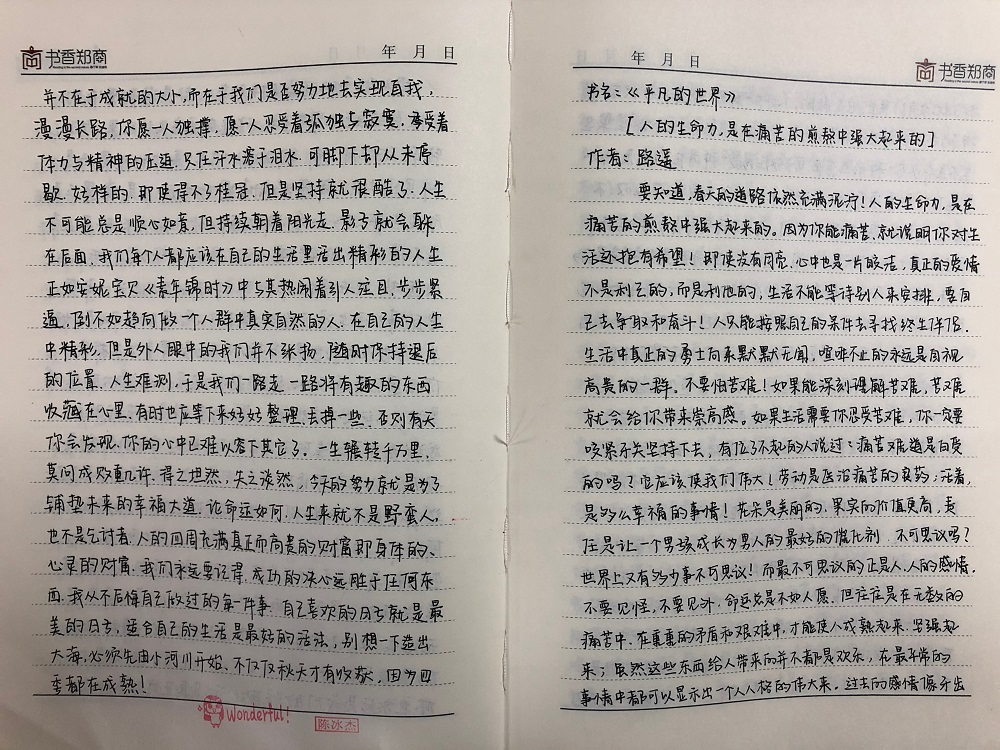 书香郑商
年 月 日
并不在于成就的大小,而在于我们是否努力地去实现自我,
漫漫长路,你愿一人独撑,愿一人忍受着孤独与寂寞,承受着
体力与精神的压迫.只任汗水溶于泪水.可脚下却从未停
歇.好样的.即使得不了桂冠.但是坚持就很酷了.人生
不可能总是顺心如意,但持续朝着阳光走.影子就会躲
在后面.我们每个人都应该在自己的生活里活出精彩的人生
正如安妮宝贝《素年锦时》中与其热闹着引人注目.步步紧
逼,倒不如趋向做一个人群中真实自然的人.在自己的人生
中精彩.但是外人眼中的我们并不张扬.随时保持退后
的位置.人生难测,于是我们一路走一路将有趣的东西
收藏在心里.有时也应等下来好好整理.丢掉一些.否则有天
你会发现.你的心中已难以容下其它了.一生辗转千万里.
莫问成败重几许.得之坦然,失之淡然,今天的努力就是为了
铺垫未来的幸福大道.论命运如何.人生来就不是野蛮人,
也不是乞讨者.人的四周充满真正而高贵的财富即身体的、
心灵的财富.我们永远要记得.成功的决心远胜于任何东
西.我从不后悔自己做过的每一件事.自己喜欢的日子就是最
美的日子,适合自己的生活是最好的活法,别想一下造出
大海,必须先由小河川开始,不仅仅秋天才有收获,因为四
季都在成熟!
Wonderful!
陈冰杰
年 月 日
书香郑商
书名:《平凡的世界》
[人的生命力,是在痛苦的煎熬中强大起来的]
作者:路遥
要知道,春天的道路依然充满泥泞!人的生命力,是在
痛苦的煎熬中强大起来的。因为你能痛苦、就说明你对生
活还抱有希望!即使没有月亮、心中也是一片皎洁,真正的爱情
不是利己的,而是利他的,生活不能等待别人来安排,要自
己去争取和奋斗!人只能按照自己的条件去寻找终生伴侣.
生活中真正的勇士向来默默无闻,喧哗不止的永远是自视
高贵的一群。不要怕苦难!如果能深刻理解苦难,苦难
就会给你带来崇高感。如果生活需要你忍受苦难,你一定要
咬紧牙关坚持下去,有位了不起的人说过:痛苦难道是白受
的吗?它应该使我们伟大!劳动是医治痛苦的良药;活着,
是多么幸福的事情!花朵是美丽的、果实的价值更高,责
任是让一个男孩成长为男人的最好的催化剂.不可思议吗?
世界上又有多少事不可思议!而最不可思议的正是人.人的感情.
不要见怪,不要见外.命运总是不如人愿.但往往是在无数的
痛苦中.在重重的矛盾和艰难中,才能使人成熟起来.坚强起
来;虽然这些东西给人带来的并不都是欢乐,在最平常的
事情中都可以显示出一个人人格的伟大来.过去的感情像牙齿